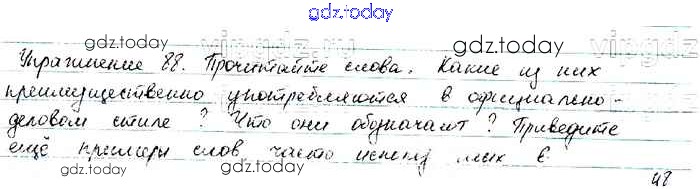 gdz.today
gdz.today
Упражнение 88. Прочитайте слова. Какие из них
преимущественно употребляются в официально-
gdz.today gdz.today
деловом стиле? Что они обозначают? Приведите
ещё примеры слов часто
gdz.today gdz.today
48